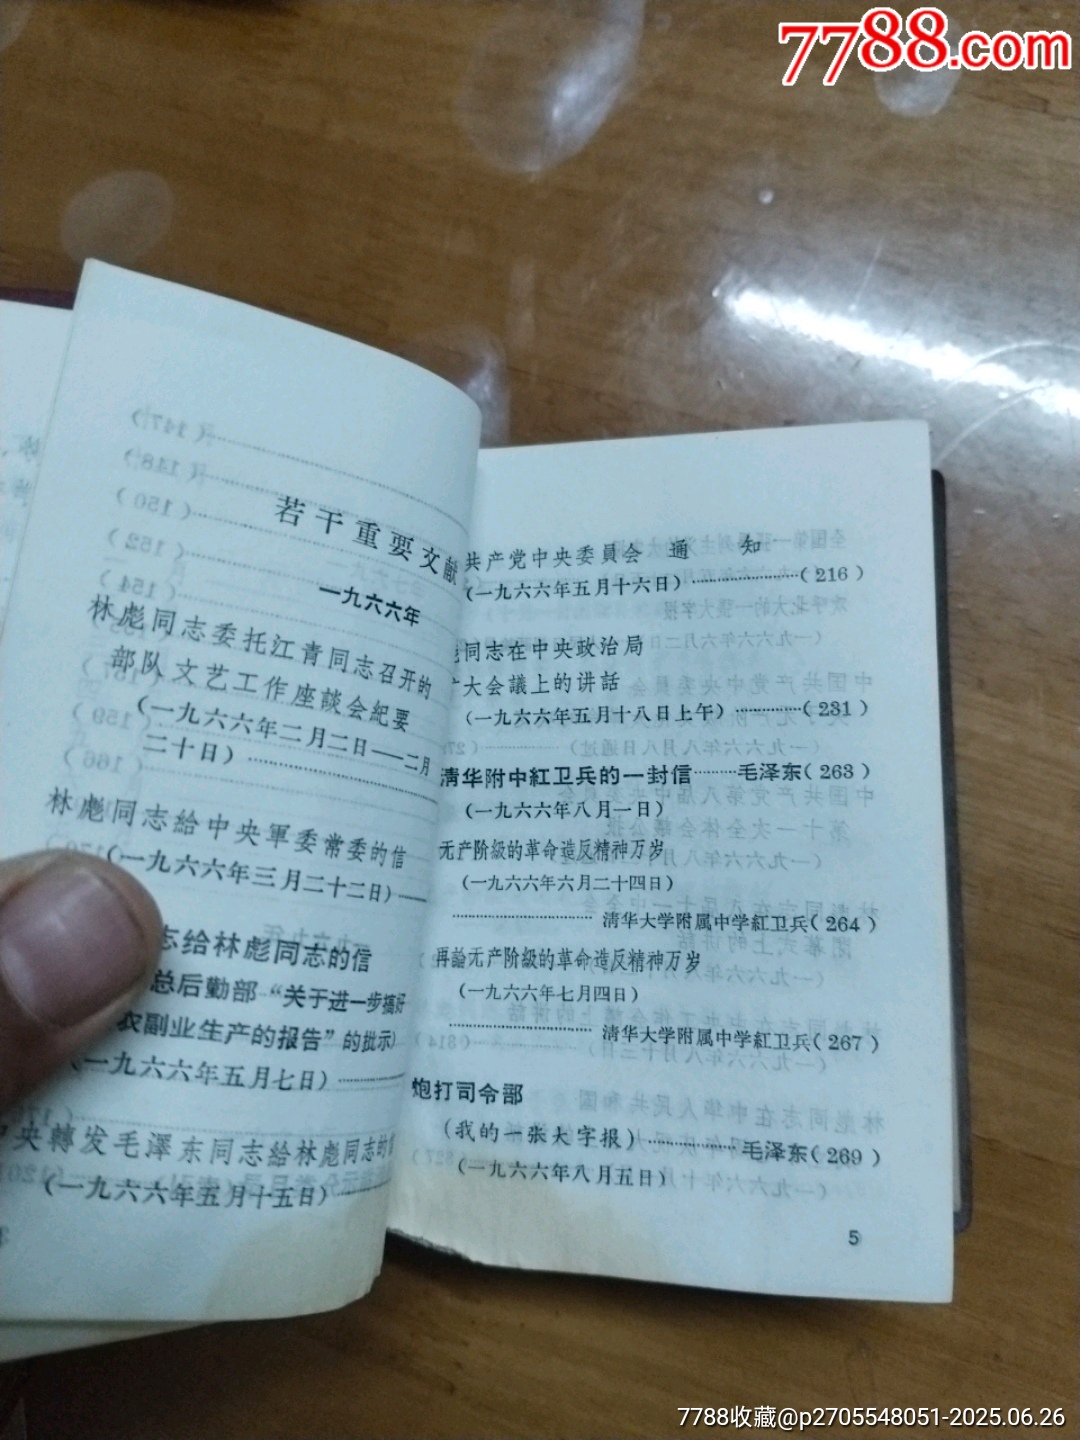 7788.com
若干重要文献
一九六六年
林彪同志委托江青同志召开的
部队文艺工作座談会紀要
(一九六六年二月二日——二月
二十日)
林彪同志給中央軍委常委的信
(一九六六年三月二十二日)
志给林彪同志的信
总后勤部“关于进一步搞好
农副业生产的报告”的批示)
(一九六六年五月七日)
中央轉发毛澤东同志給林彪同志的信
(一九六六年五月十五日)
共产党中央委員会 通 知
(一九六六年五月十六日)(216)
彪同志在中央政治局
扩大会議上的讲話
(一九六六年五月十八日上午)(231)
清华附中紅卫兵的一封信毛泽东(263)
(一九六六年八月一日)
无产阶級的革命造反精神万岁
(一九六六年六月二十四日)
清华大学附属中学紅卫兵(264)
再論无产阶級的革命造反精神万岁
(一九六六年七月四日)
清华大学附属中学紅卫兵(267)
炮打司令部
(我的一张大字报)毛泽东(269)
(一九六六年八月五日)
5
7788收藏@p2705548051-2025.06.26